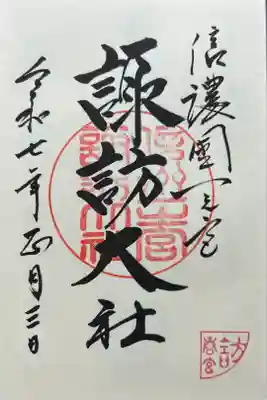 信濃國一之宮
諏訪大社
令和七年正月三日
春宮